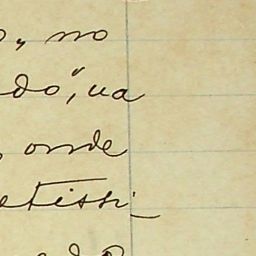 o, no
do", na
, onde
etissi_